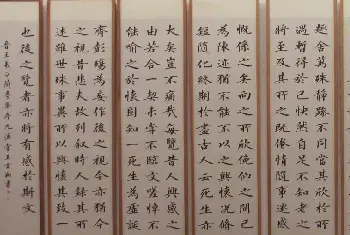 趣舍萬殊靜躁不同當其欣於所
遇暫得於己快然自足不知老之
將至及其所之既倦情隨事遷感
慨係之矣向之所欣俛仰之間已
為陳迹猶不能不以之興懷況脩
短隨化終期於盡古人云死生亦
大矣豈不痛哉每覽昔人興感之
由若合一契未嘗不臨文嗟悼不
能喻之於懷固知一死生為虛誕
齊彭殤為妄作後之視今亦猶今
之視昔悲夫故列叙時人録其所
述雖世殊事異所以興懷其致一
也後之覽者亦將有感於斯文
晉王羲之蘭亭集序